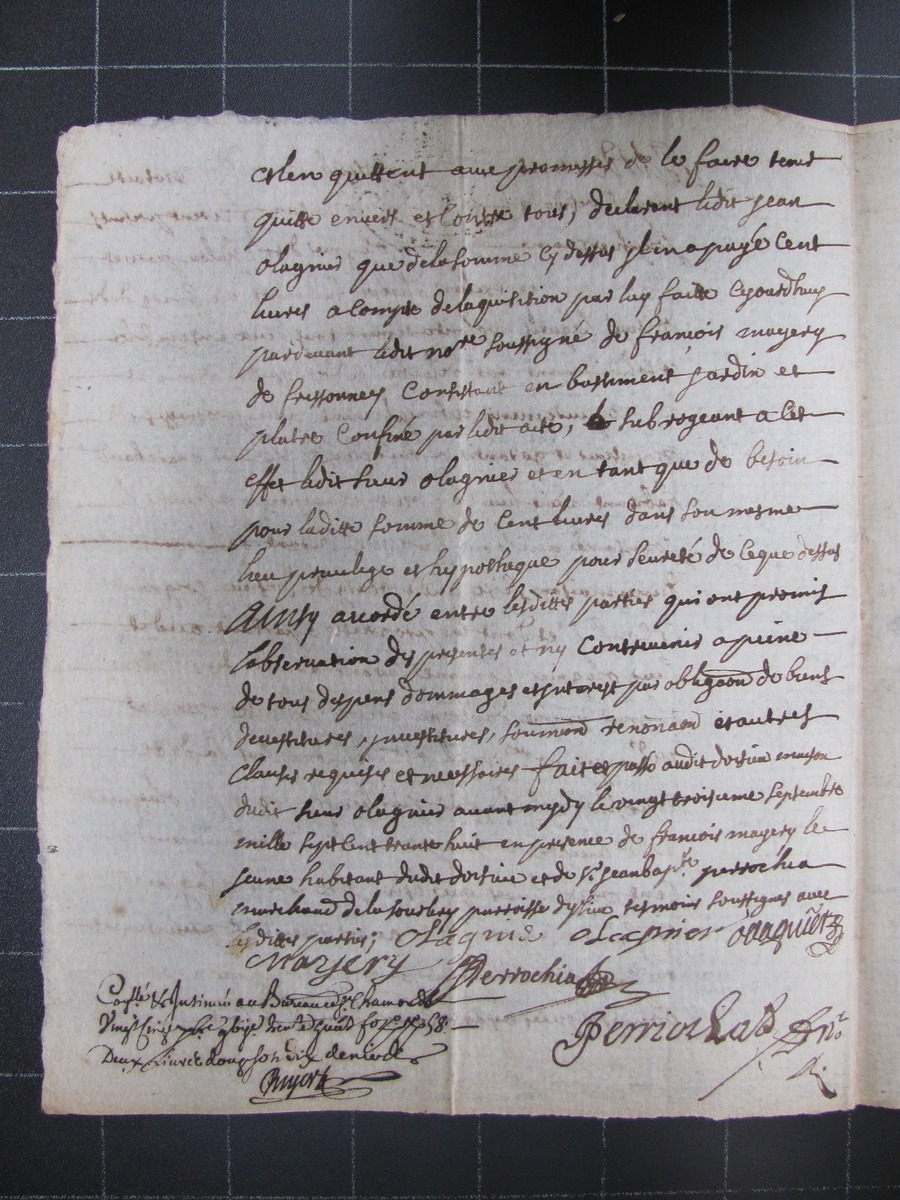 et len quittent avec promesses de le faire tenir
quitte envers et Contre tous, declarant ledit jean
olagnier que de la somme cy dessus jl en a payé Cent
livres a Compte de laquisition par luy faitte cejourdhuy
pardevant ledit nore soussigné de françois mazery
de frissonnes, Consistant en bastiment jardin et
platre Confiné par ledit acte, subrogeant a cet
effet ledit sieur olagnier et en tant que de besoin
pour laditte somme de Cent livres dans son mesme
lieu privilege et hypotheque pour seureté de ce que dessus
Ainsy accordé entre lesdittes parties qui ont promis
lobservation des presentes et ny Contrevenir a peine
de tous despens dommages et jnterest par obligaon de biens
devestitures, jnvestitures, soumision renonaon et autres
Clauses requises et necessaires fait et passé audit maison
dudit sieur olagnier avant mydy le vingt troisieme septembre
mille sept Cent trante huit en presence de françois mazery le
jeune habitant dudit et de sr jean bapte. perrochia
marchand de la parroisse tesmoins soussignés avec
lesdittes parties; Olagnié Olagnier
Mazery Perrochia
Controllé & Insinué au Bureau de
Deux Livres douze sols dix deniers